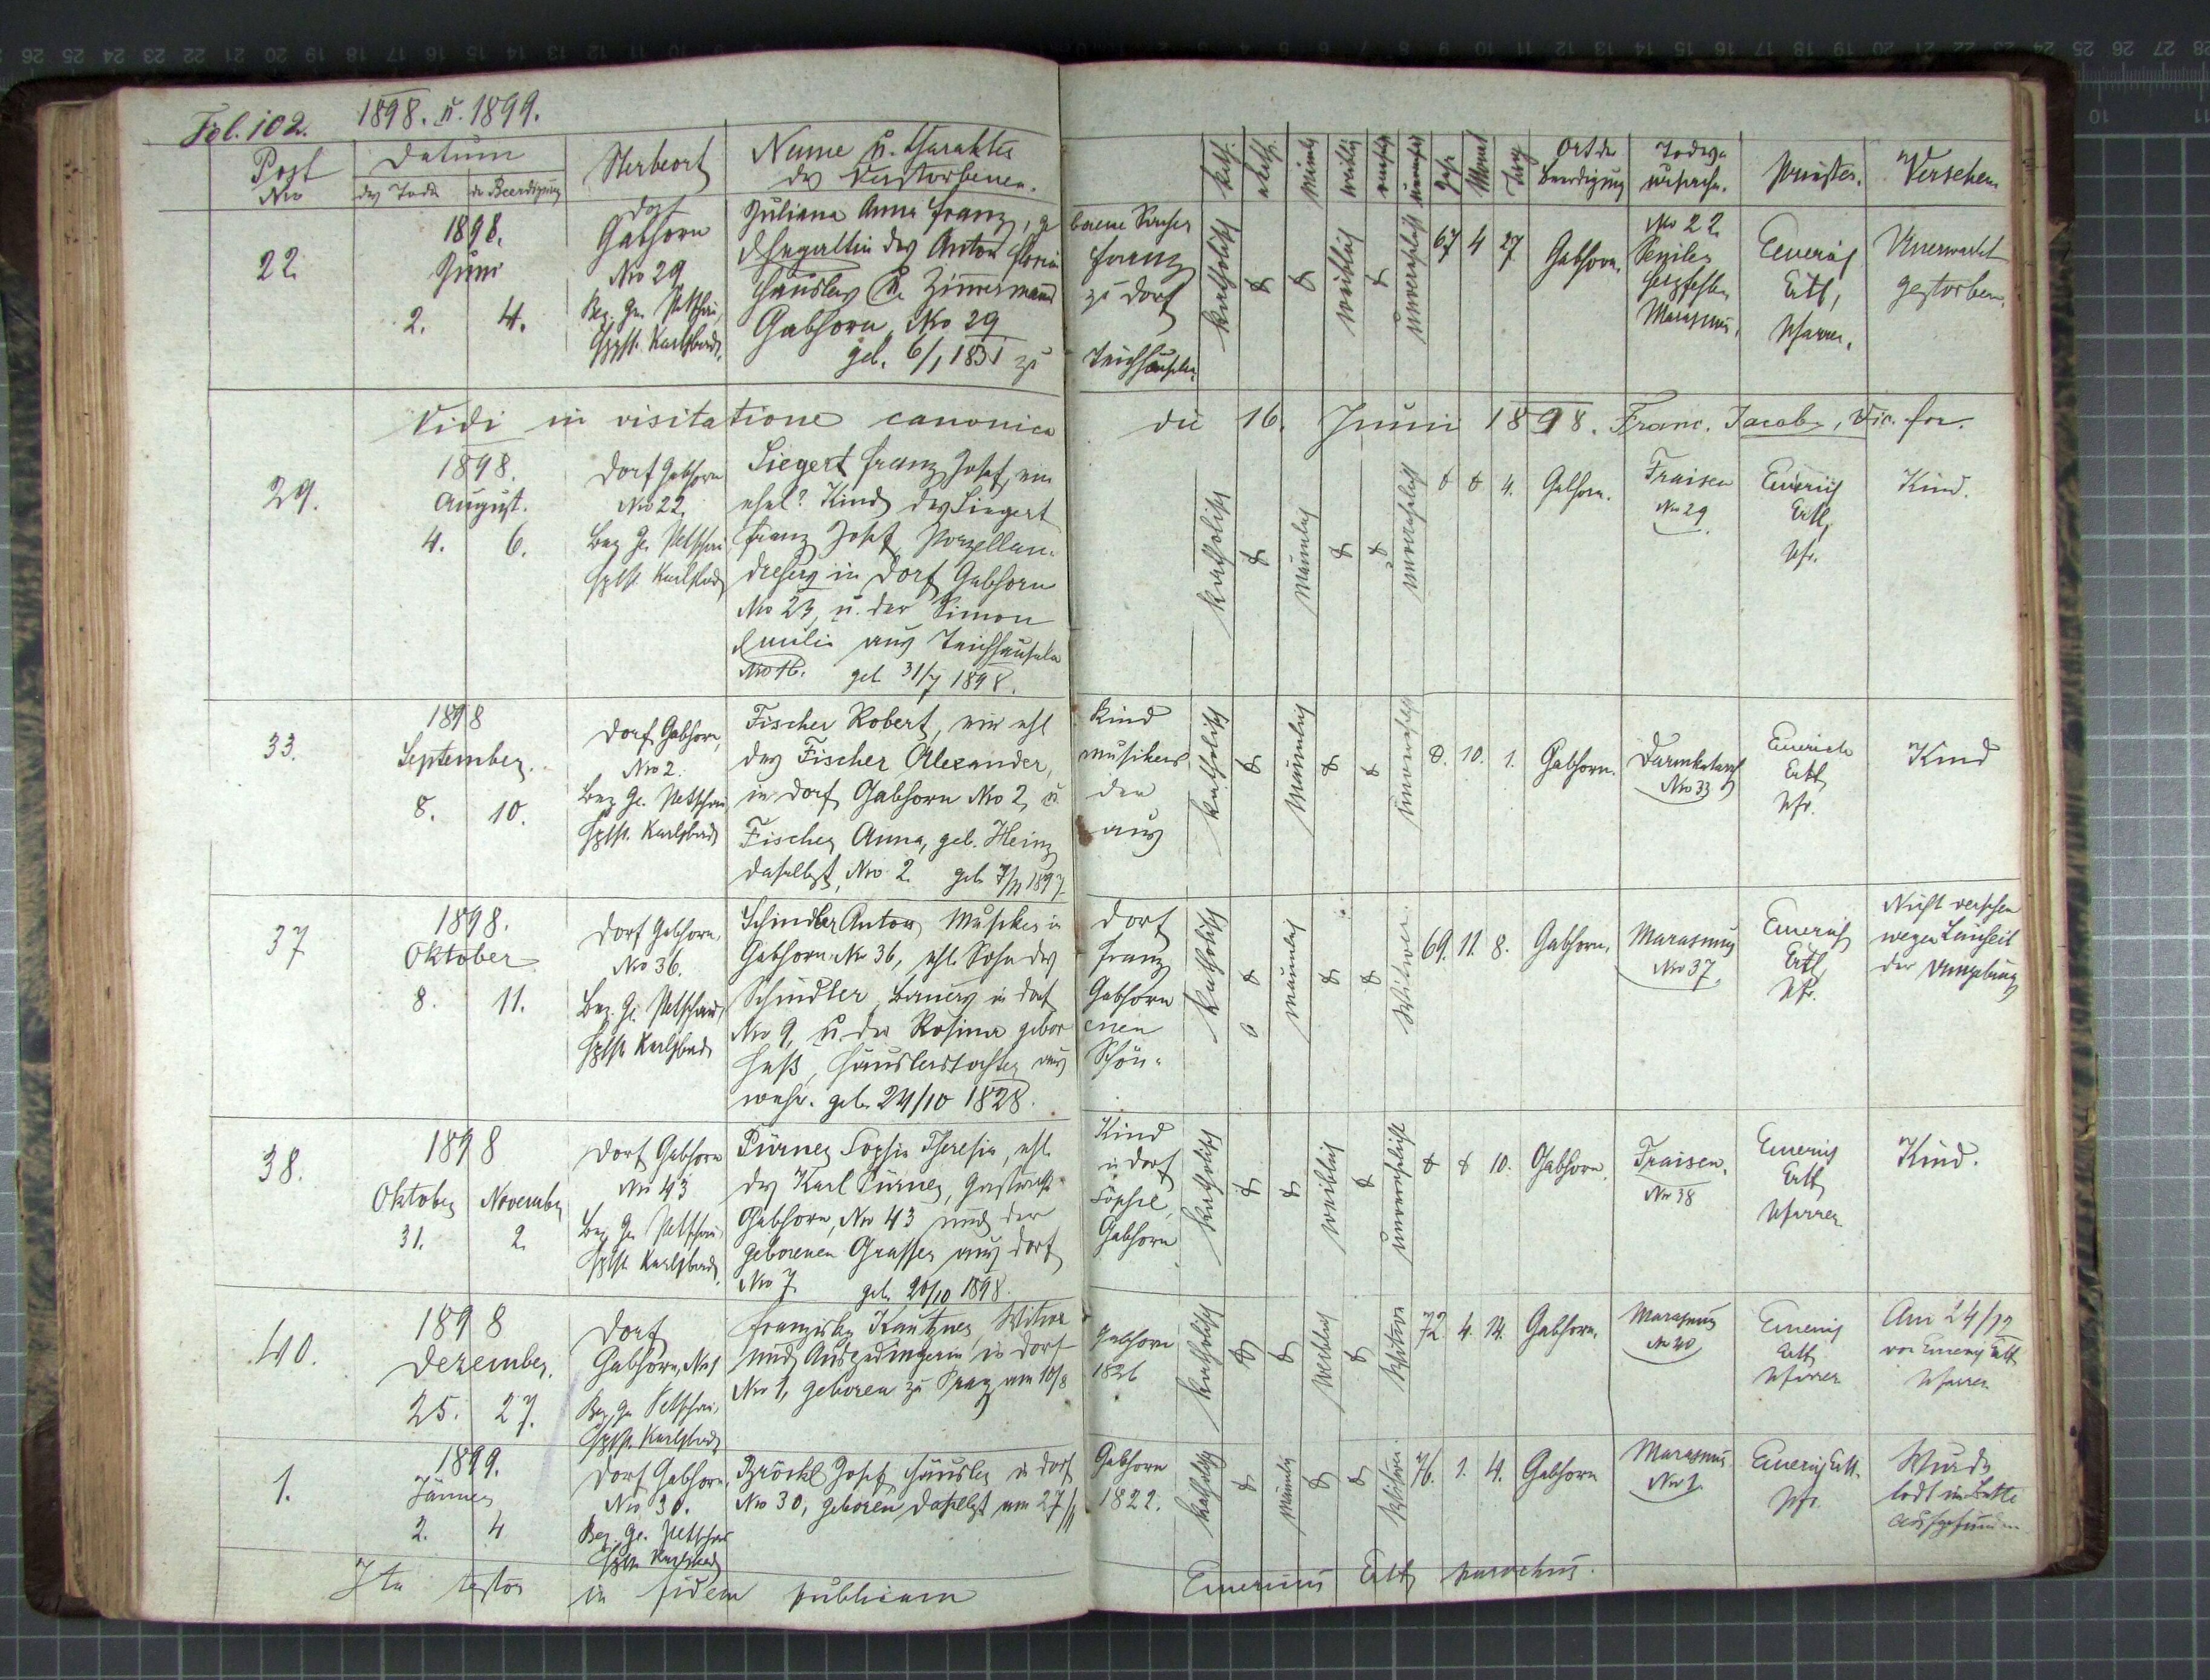 Fol. 102. 1898. u. 1899.
Post Nro Datum des Todes der Beerdigung Sterbeort Name u. Charakter des Verstorbenen. kath. akath. männl. weibl. Jahr Monat Tag Ort der Beerdigung Todesursache. Priester. Versehen
22. 1898. Juni 2. 4.
Dorf
Gabhorn
Nro 29
Bez. Ger. Petschau,
Hptst. Karlsbad.
Juliana Anna Franz, geborene
Ehegattin des Anton Franz
Häuslers u. Zimmermann zu Dorf
Gabhorn, Nro 29
geb. 6/1 1831 zu Teichhäuseln.
katholisch weiblich unverehelicht 67 4 27 Gabhorn.
Nro 22.
Seniler
Herzfehler
Marasmus.
Emerich
Ertl,
Pfarrer.
Unerwartet
gestorben.
Vidi in visitatione canonica die 16. Junii 1898. Franc. Jacob, Vic. for.
29. 1898. August. 4. 6.
Dorf Gabhorn
Nro 22.
Bez. Ger. Petschau
Hptst. Karlsbad
Siegert Franz Josef, ein
ehel. Kind des Siegert
Franz Josef, Porzellan-
drehers in Dorf Gabhorn
Nro 23, u. der Simon
Emilie aus Teichhäuseln
Nro 16. geb. 31/7 1898.
katholisch männlich unverehelicht 4. Gabhorn.
Fraisen
Nro 29
Emerich
Ertl,
Pfr.
Kind.
33. 1898 September. 8. 10.
Dorf Gabhorn,
Nro 2.
Bez. Ger. Petschau
Hptst. Karlsbad
Fischer Robert, ein ehl. Kind
des Fischer Alexander, Musikers
in Dorf Gabhorn Nro 2, u. der
Fischer Anna, geb. Heinz aus
daselbst, Nro 2. geb. 7/11 1897
katholisch männlich unverehelicht 10. 1. Gabhorn.
Darmkatarrh
Nro 33
Emerich
Ertl
Pfr.
Kind
37 1898. Oktober 8. 11.
Dorf Gabhorn,
Nro 36.
Bez. Ger. Petschau,
Hptst. Karlsbad
Schindler Anton, Musiker in Dorf
Gabhorn Nr. 36, ehl. Sohn des Franz
Schindler, Bauers in Dorf Gabhorn
Nro 9, u. der Rosina geborenen
Haß, Häuslerstochter aus Schön-
wehr. geb. 24/10 1828.
katholisch männlich Witwer. 69. 11. 8. Gabhorn.
Marasmus
Nro 37.
Emerich
Ertl
Pfr.
Nicht versehen
wegen
der Umgebung
38. 1898 Oktober 31. November 2.
Dorf Gabhorn
Nro 43
Bez. Ger. Petschau,
Hptst. Karlsbad.
Pürner Sophie Theresia, ehl. Kind
des Karl Pürner, Gastwirth in Dorf
Gabhorn, Nro 43 und der Sophie,
geborenen Grasser aus Dorf Gabhorn
Nro 7. geb. 20/10 1898.
katholisch weiblich unverehelicht 10. Gabhorn.
Fraisen.
Nro 38
Emerich
Ertl
Pfarrer
Kind.
40. 1898 Dezember. 25. 27.
Dorf
Gabhorn, No 1
Bez. Ger. Petschau,
Hptst. Karlsbad
Franziska Kautzner, Witwe
und Ausgedingerin in Dorf Gabhorn
Nro 1, geboren zu Prag am 10/8 1826
katholisch weiblich Witwe 72. 4. 14. Gabhorn.
Marasmus
Nro 40
Emerich
Ertl
Pfarrer
Am 24/12
von Emerich Ertl
Pfarrer
1. 1899. Jänner 2. 4
Dorf Gabhorn,
Nro 30.
Bez. Ger. Petschau
Hptst. Karlsbad
Bröckl Josef, Häusler in Dorf Gabhorn
Nro 30, geboren daselbst am 27/11 1822.
katholisch männlich Witwer 76. 1. 4. Gabhorn
Marasmus
Nro 1.
Emerich Ertl
Pfr.
Wurde
todt im Bette
aufgefunden
Ita testor in fidem publicam Emericus Ertl parochus.